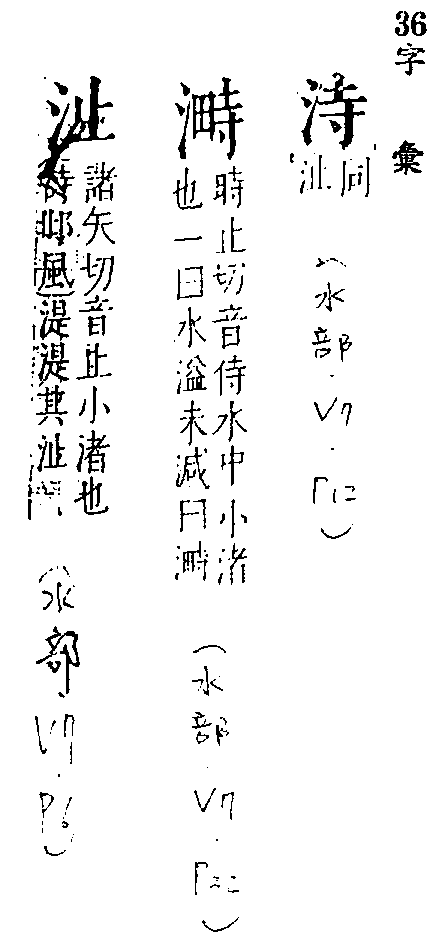 36字彙
洔
沚同
(水部.V7.P12)
㴪
時止切音侍水中小渚
也一曰水溢未減曰㴪
(水部.V7.P32)
沚
諸矢切音止小渚也
詩邶風湜湜其沚
(水部.V7.P6)